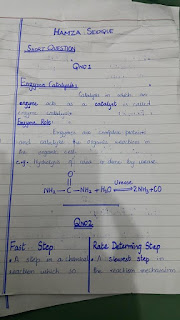 HAMZA SEDIQUE
SHORT QUESTION
QNO1
Enzyme Catalysis:
Catalysis in which an
enzyme acts as a catalyst is called
enzyme catalysis
Enzyme Role:
Enzymes are complex protein
and catalyze the organic reactions in
the organic cell.
e.g. Hydrolysis of urea is done by urease
O
||
NH₂ - C - NH₂ + H₂O Urease → 2NH₃ + CO
QNO2
Fast Step
Rate Determing Step
• A step in a chemical
reaction which is
• A slowest step in
the reaction mechanism